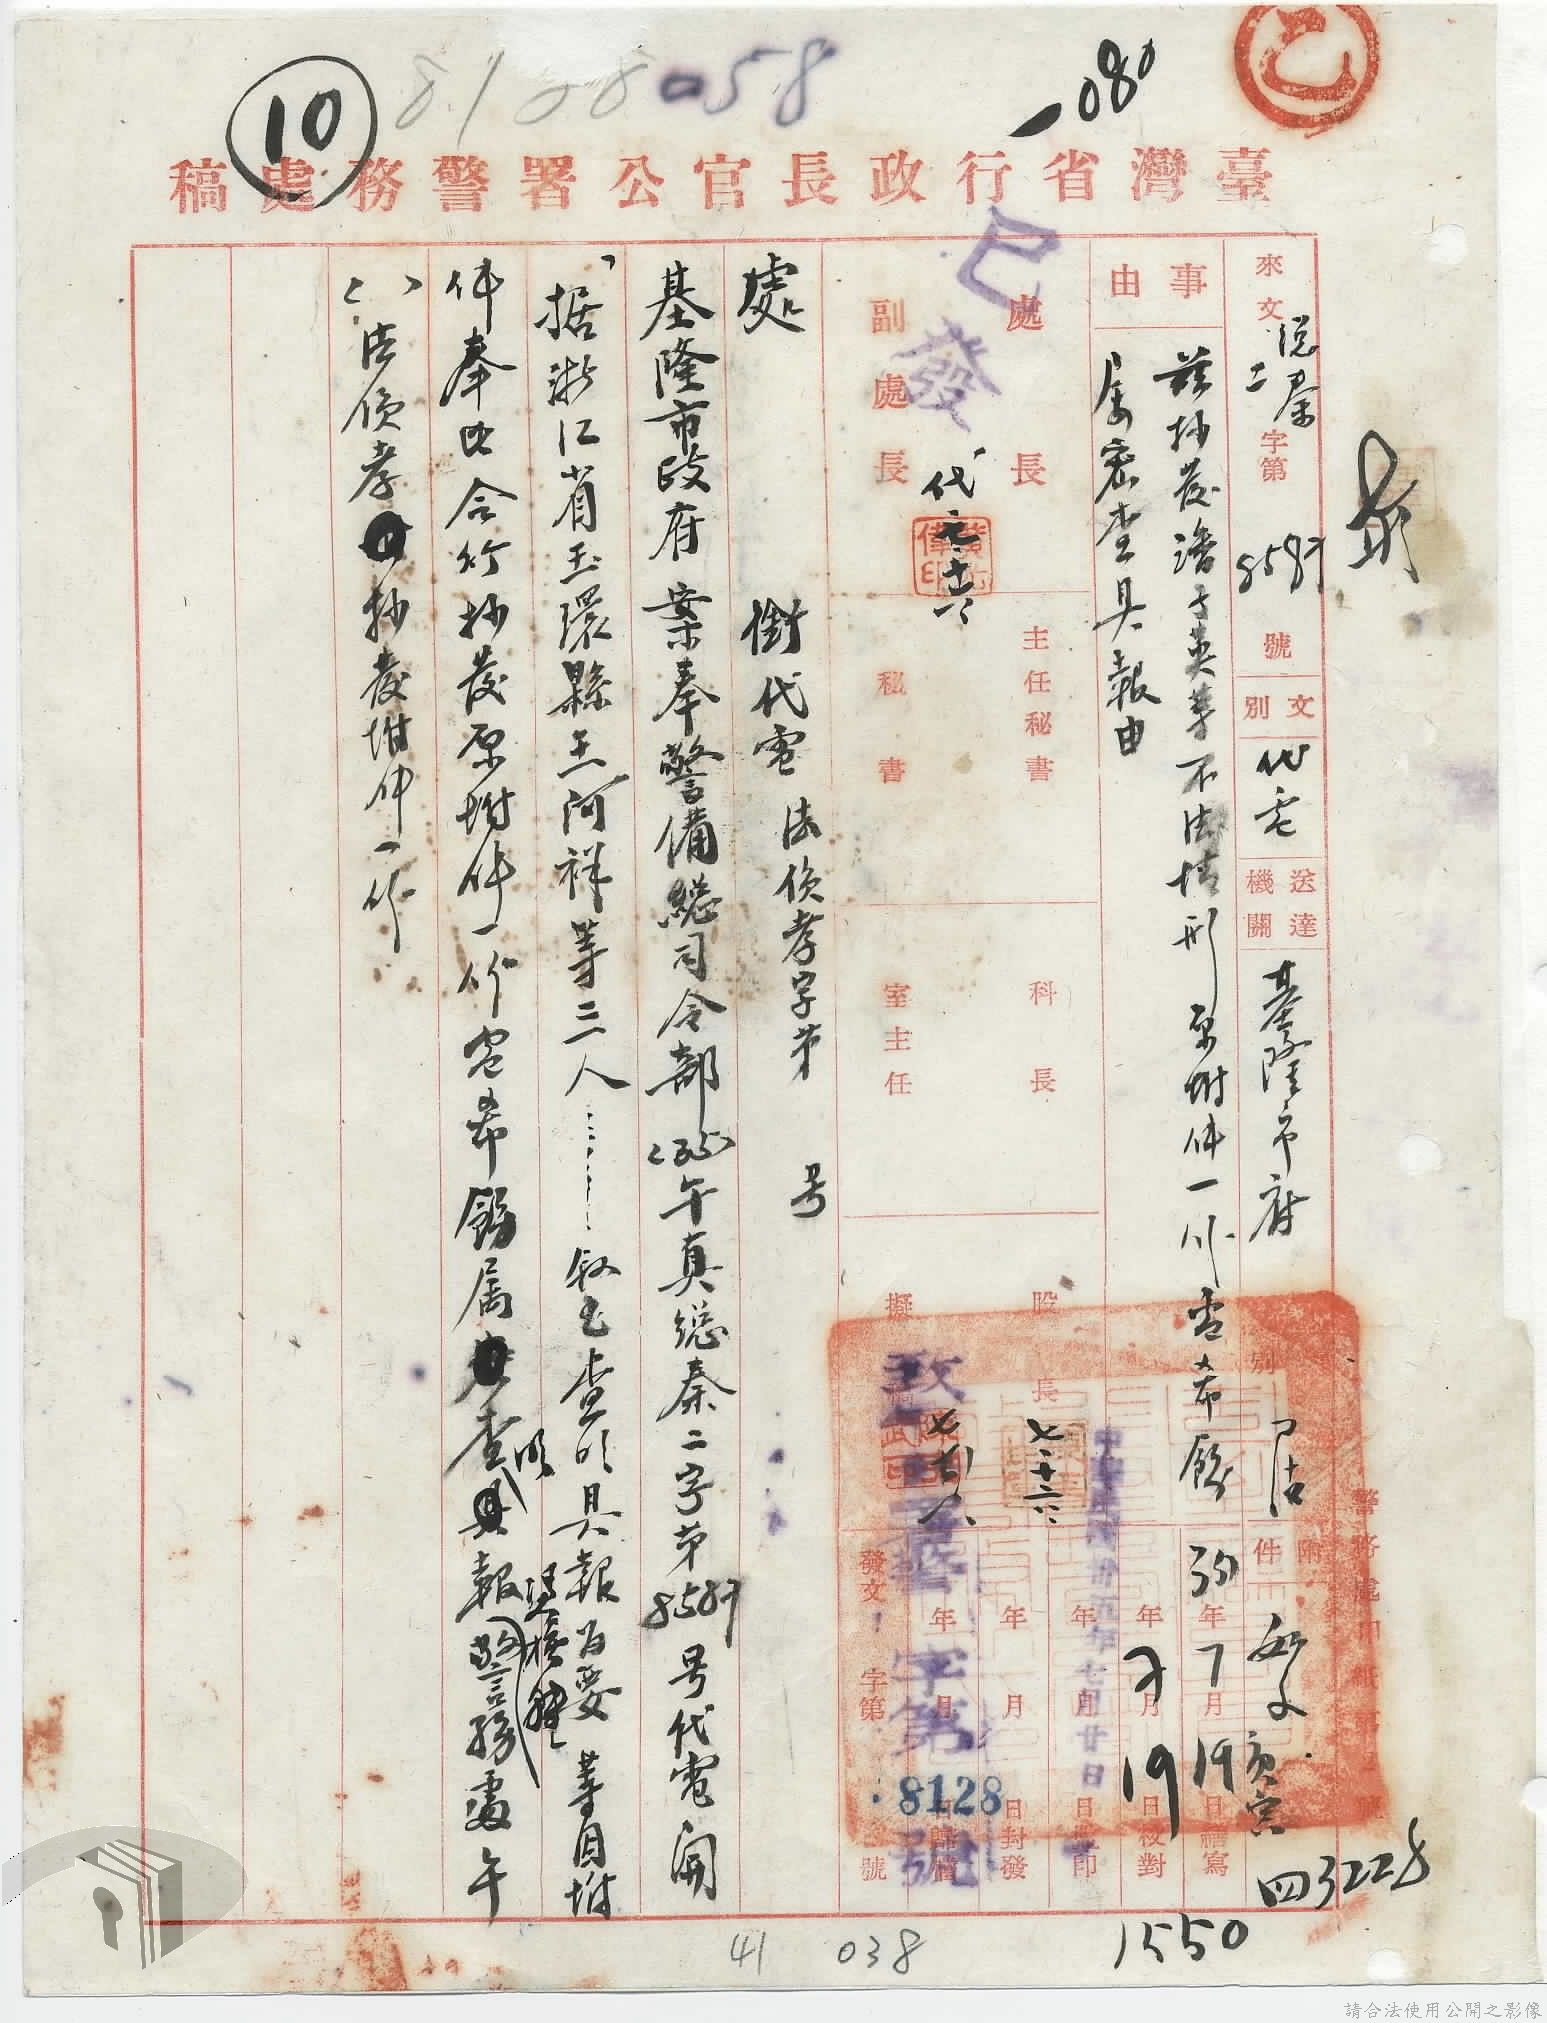 10
8108058
-080
乙
臺灣省行政長官公署警務處稿
來文
字第
8587
號
文別
代電
送達機關
基隆市府
別
附件
如文
事由
茲抄發潘子英等不法情形原附件一份電希飭
屬密查具報由
已發
處長
副處長
代
主任秘書
秘書
科長
室主任
股長
擬稿
中華民國卅五年七月廿日
35年7月19日繕寫
7月19日校對
年月日蓋印
年月日封發
年月日歸檔
發文
字第
號
致
字第
8128
號
四3228
1550
處
銜代電
法偵孝字第 号
基隆市政府案奉警備總司令部(35)午真總秦二字第8587号代電開
「据浙江省玉環縣王阿祥等三人………叙至查明具報為要等因附
件奉此合行抄發原附件一份電希飭属查明具報警務處午
( )法偵孝抄發附件一份
41
038
請合法使用公開之影像